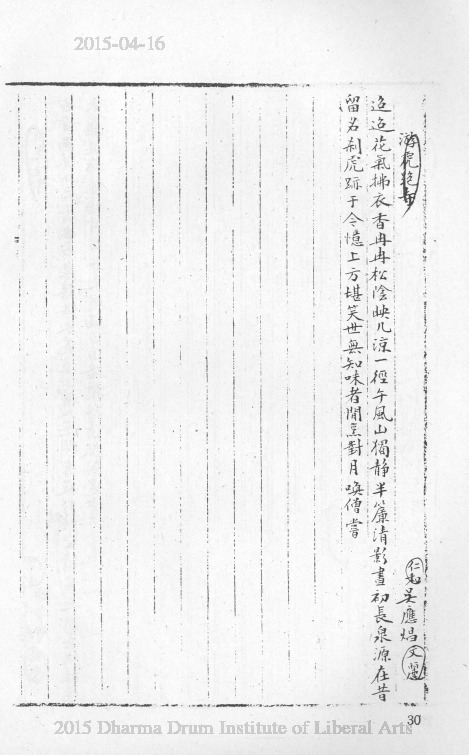 2015-04-16
游虎跑寺
仁和吳應焻文麗
迢迢花氣拂衣香冉冉松陰映几涼一徑午風山獨靜半簾清影晝初長泉源在昔
留名刹虎跡于今憶上方堪笑世無知味者閒烹對月喚僧嘗
30
2015 Dharma Drum Institute of Liberal Arts